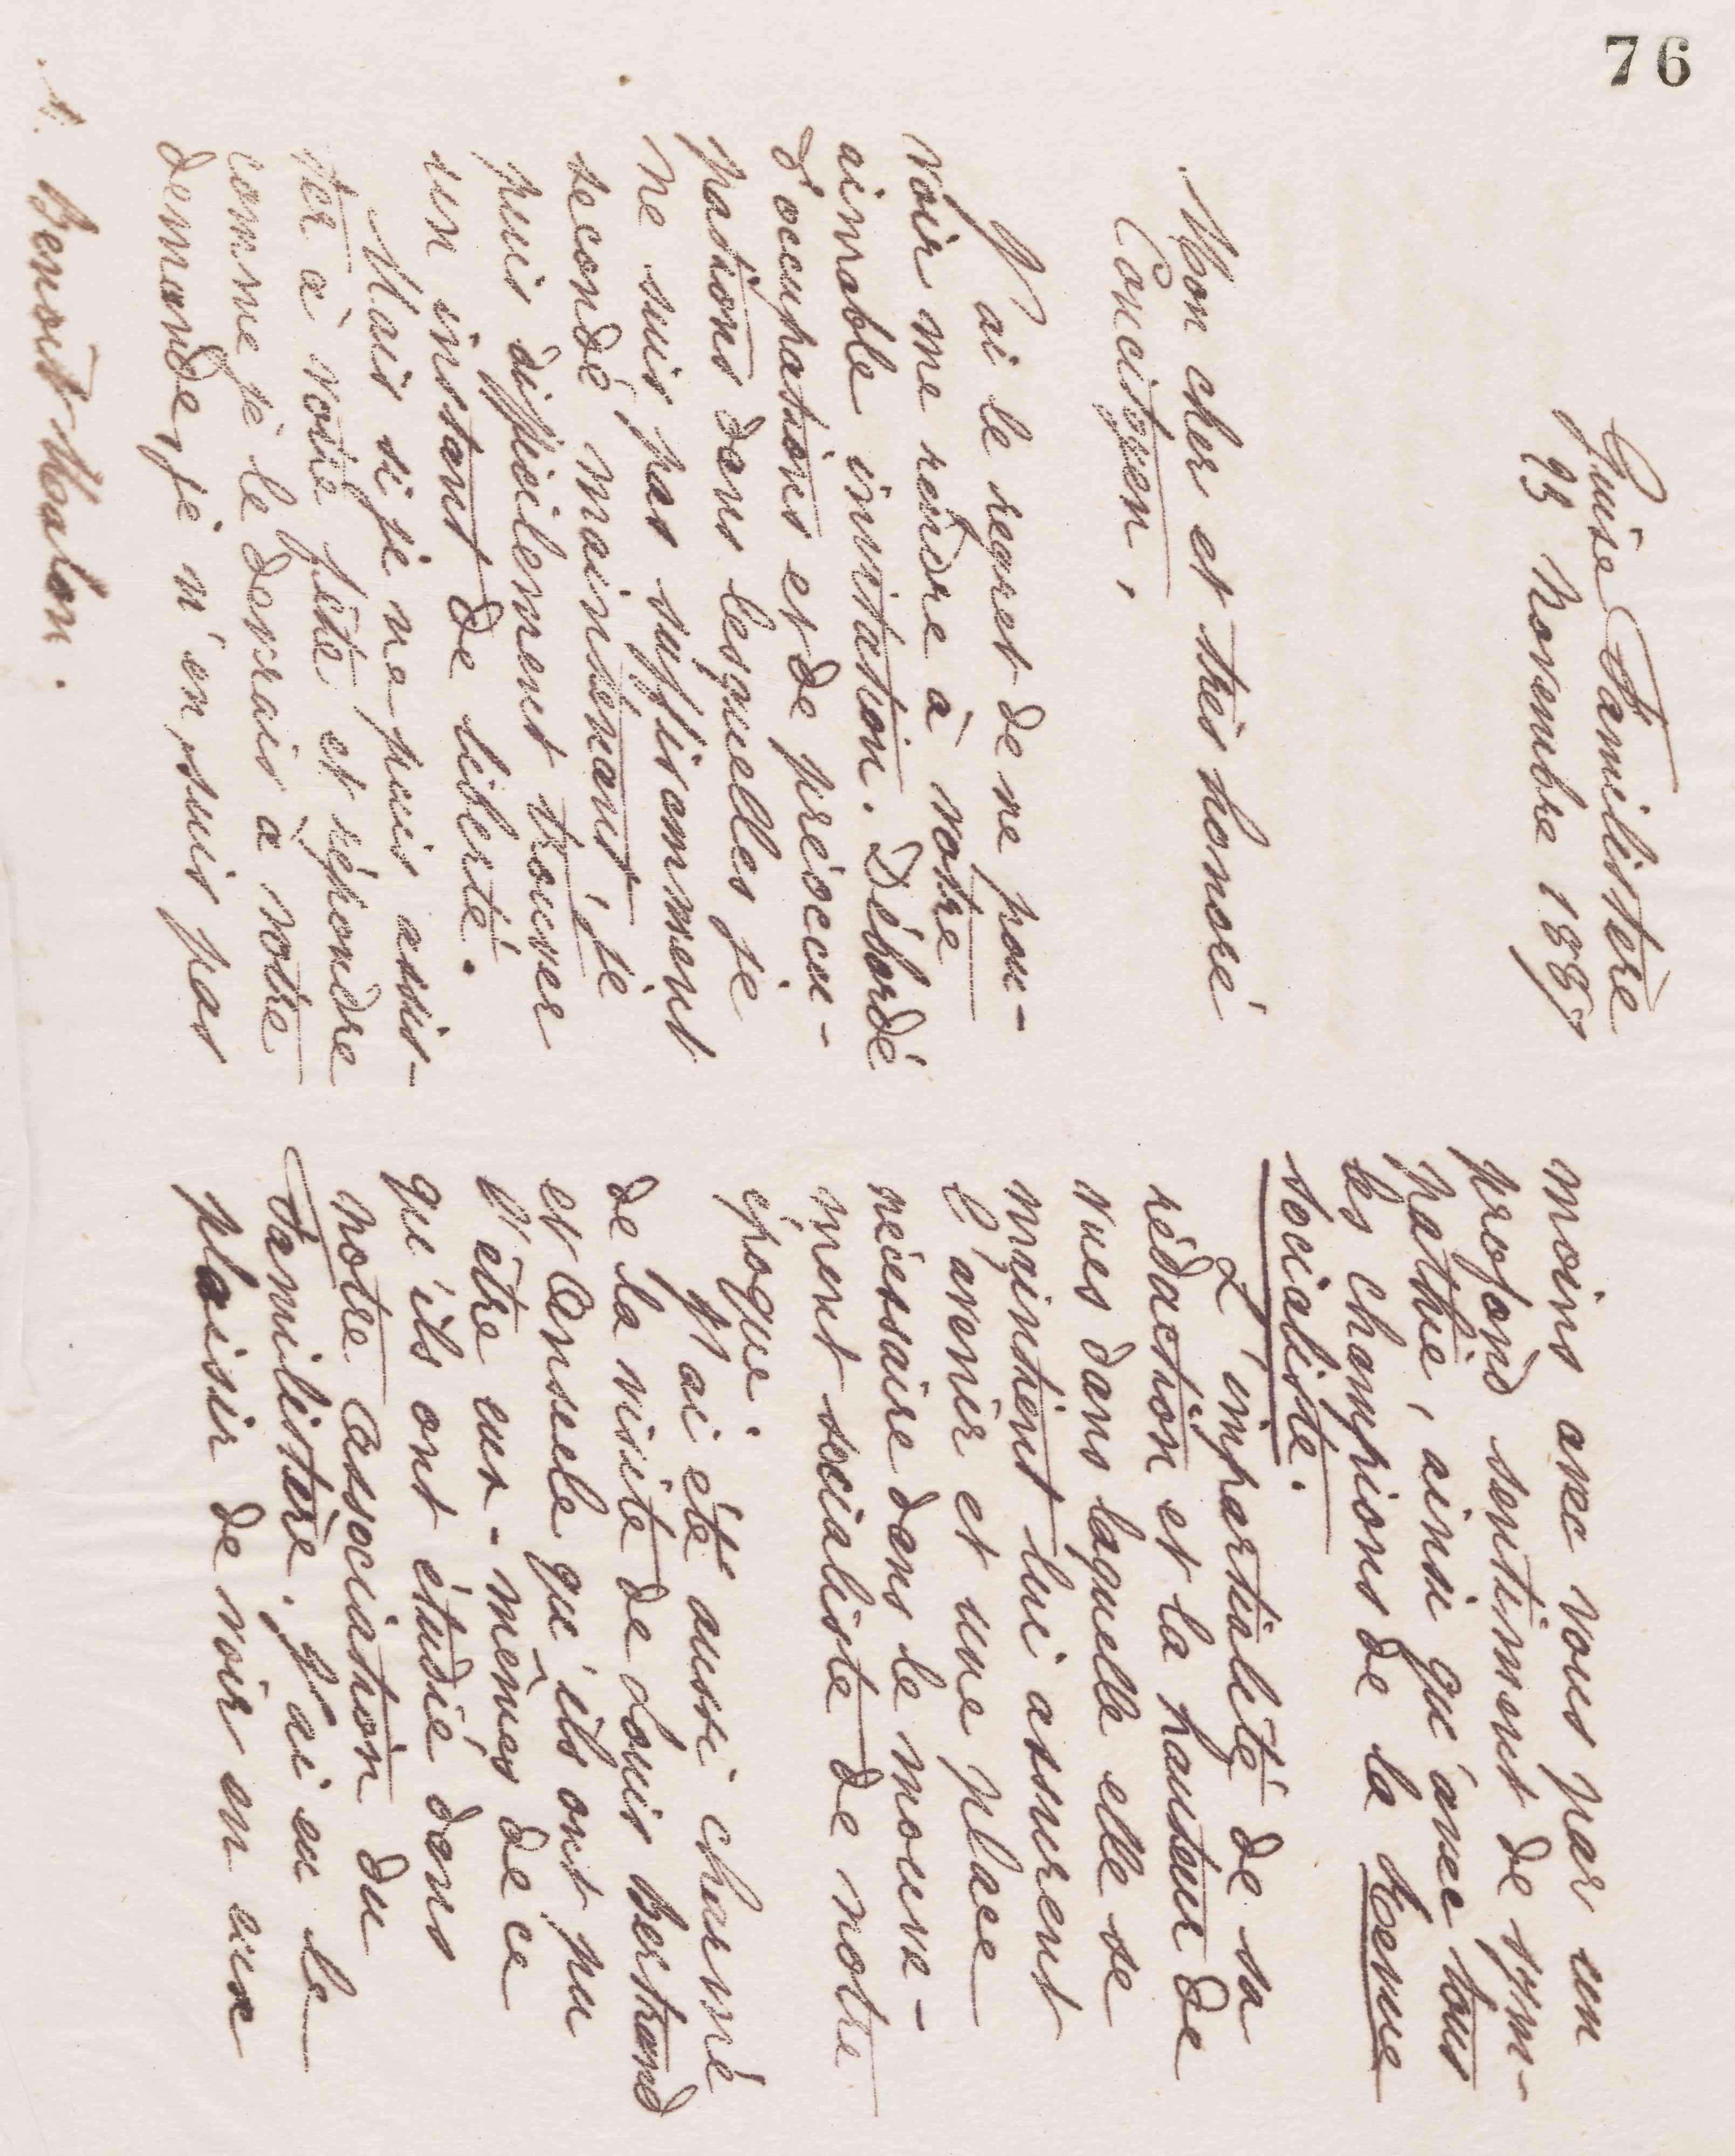 76
Guise Familistère
23 novembre 1887
Mon cher et très honoré
Concitoyen,
J'ai le regret de ne pou-
voir me rendre à votre
aimable invitation. Débordé
d'occupations et de préoccu-
pations dans lesquelles je
ne suis pas suffisamment
secondé maintenant, je
puis difficilement trouver
un instant de liberté.
Mais si je ne puis assis-
ter à votre fête et répondre
comme je le devrais à votre
demande, je n'en suis pas
M. Benoît Malon.
moins avec vous par un
profond sentiment de sym-
pathie, ainsi qu'avec tous
les champions de la Revue
socialiste.
L'impartialité de sa
rédaction et la hauteur de
vues dans laquelle elle se
maintient lui assurent
l'avenir et une place
nécessaire dans le mouve-
ment socialiste de notre
époque.
J'ai été aussi charmé
de la visite de Louis Bertrand
et Anseele qu'ils ont pu
l'être eux-mêmes de ce
qu'ils ont étudié dans
notre Association du
Familistère. J'ai eu le
plaisir de voir en eux